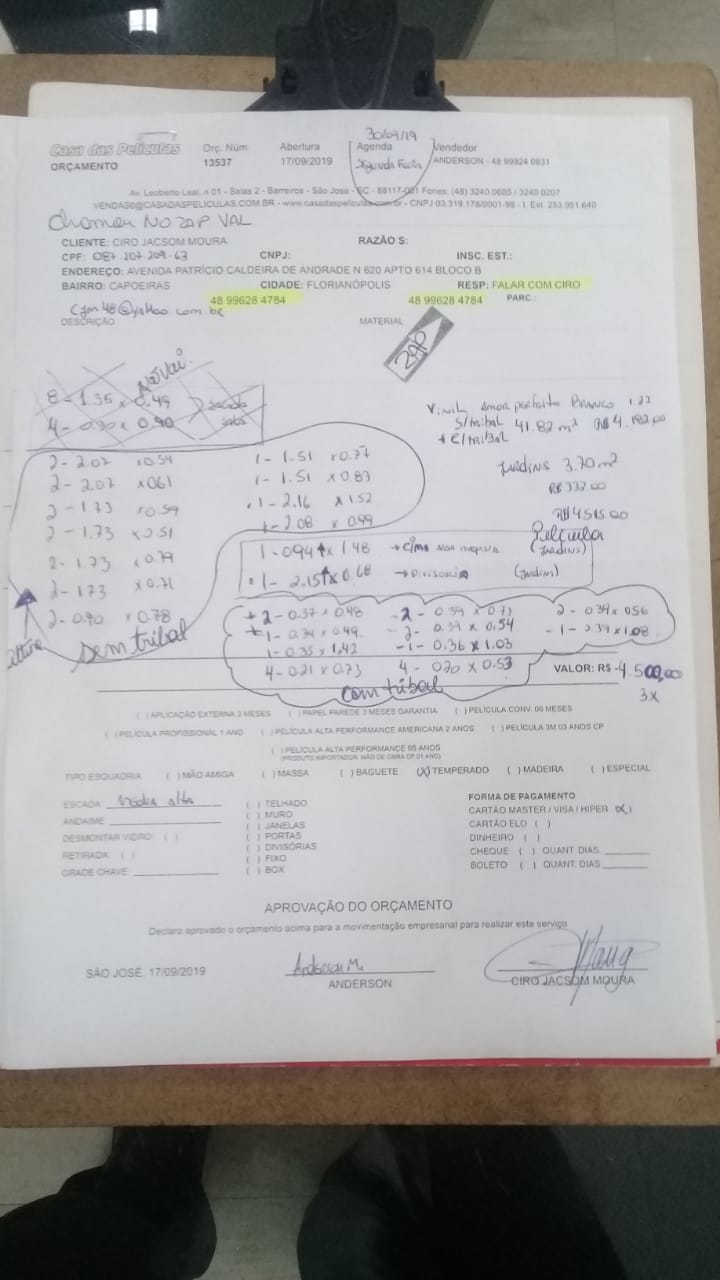 30/09/19
Casa das Películas Orç. Núm Abertura Agenda Vendedor
ORÇAMENTO 13537 17/09/2019 Segunda Feira ANDERSON - 48 99924 0831
Av. Leoberto Leal, n.01 - Salas 2 - Barreiros - São José - SC - 88117-001 Fones: (48) 3240.0605 / 3240.0207
VENDAS6@CASADASPELICULAS.COM.BR - www.casadaspeliculas.com.br - CNPJ 03.319.178/0001-98 - I. Est. 253.951.640
Chamar NO ZAP VAL
CLIENTE: CIRO JACSOM MOURA RAZÃO S:
CPF: 087.207.209-63 CNPJ: INSC. EST.:
ENDEREÇO: AVENIDA PATRÍCIO CALDEIRA DE ANDRADE N 620 APTO 614 BLOCO B
BAIRRO: CAPOEIRAS CIDADE: FLORIANÓPOLIS RESP: FALAR COM CIRO
48 99628 4784 48 99628 4784 PARC.:
Cjm48@yahoo.com.br
DESCRIÇÃO MATERIAL
ZAP
Não Vai
8 - 1.35 x 0.49
4 - 0.90 x 0.90 sacada
Vinil Amor perfeito BRANCO 1.22
S/tribal 41.82 m² R$ 4.182,00
+ C/TRIBAL
JARDINS 3.70 m²
R$ 333.00
R$ 4515.00
2 - 2.07 x 0.54 1 - 1.51 x 0.77
2 - 2.07 x 061 1 - 1.51 x 0.83
2 - 1.73 x 0.59 1 - 2.16 x 1.52
2 - 1.73 x 0.51 1 - 2.08 x 0.99
2 - 1.73 x 0.79
2 - 173 x 0.71
2 - 0.90 x 0.78
Altura sem tribal
1 - 094 x 1.48 (JARDINS)
1 - 2.15 x 0.68 Divisoria (Jardins)
Película
2 - 0.37 x 0.48 2 - 0.39 x 0.73 2 - 039 x 056
1 - 0.34 x 0.49 2 - 0.39 x 0.54 1 - 0.39 x 1.08
1 - 0.35 x 1.42 1 - 0.36 x 1.03
4 - 0.21 x 0.73 4 - 0.20 x 0.53
VALOR: R$ 4.500,00
3x
com tribal
( ) APLICAÇÃO EXTERNA 3 MESES ( ) PAPEL PAREDE 3 MESES GARANTIA ( ) PELÍCULA CONV. 06 MESES
( ) PELÍCULA PROFISSIONAL 1 ANO ( ) PELÍCULA ALTA PERFORMANCE AMERICANA 2 ANOS ( ) PELÍCULA 3M 03 ANOS CP
( ) PELÍCULA ALTA PERFORMANCE 05 ANOS
(PRODUTO IMPORTADOR. MÃO DE OBRA CP 01 ANO)
TIPO ESQUADRIA ( ) MÃO AMIGA ( ) MASSA ( ) BAGUETE (X) TEMPERADO ( ) MADEIRA ( ) ESPECIAL
ESCADA média alta
ANDAIME
DESMONTAR VIDRO: ( )
RETIRADA ( )
GRADE CHAVE
( ) TELHADO
( ) MURO
( ) JANELAS
( ) PORTAS
( ) DIVISÓRIAS
( ) FIXO
( ) BOX
FORMA DE PAGAMENTO
CARTÃO MASTER / VISA / HIPER (X)
CARTÃO ELO ( )
DINHEIRO ( )
CHEQUE ( ) QUANT DIAS
BOLETO ( ) QUANT DIAS
APROVAÇÃO DO ORÇAMENTO
Declaro aprovado o orçamento acima para a movimentação empresarial para realizar este serviço
SÃO JOSÉ, 17/09/2019 Anderson M.
ANDERSON CIRO JACSOM MOURA